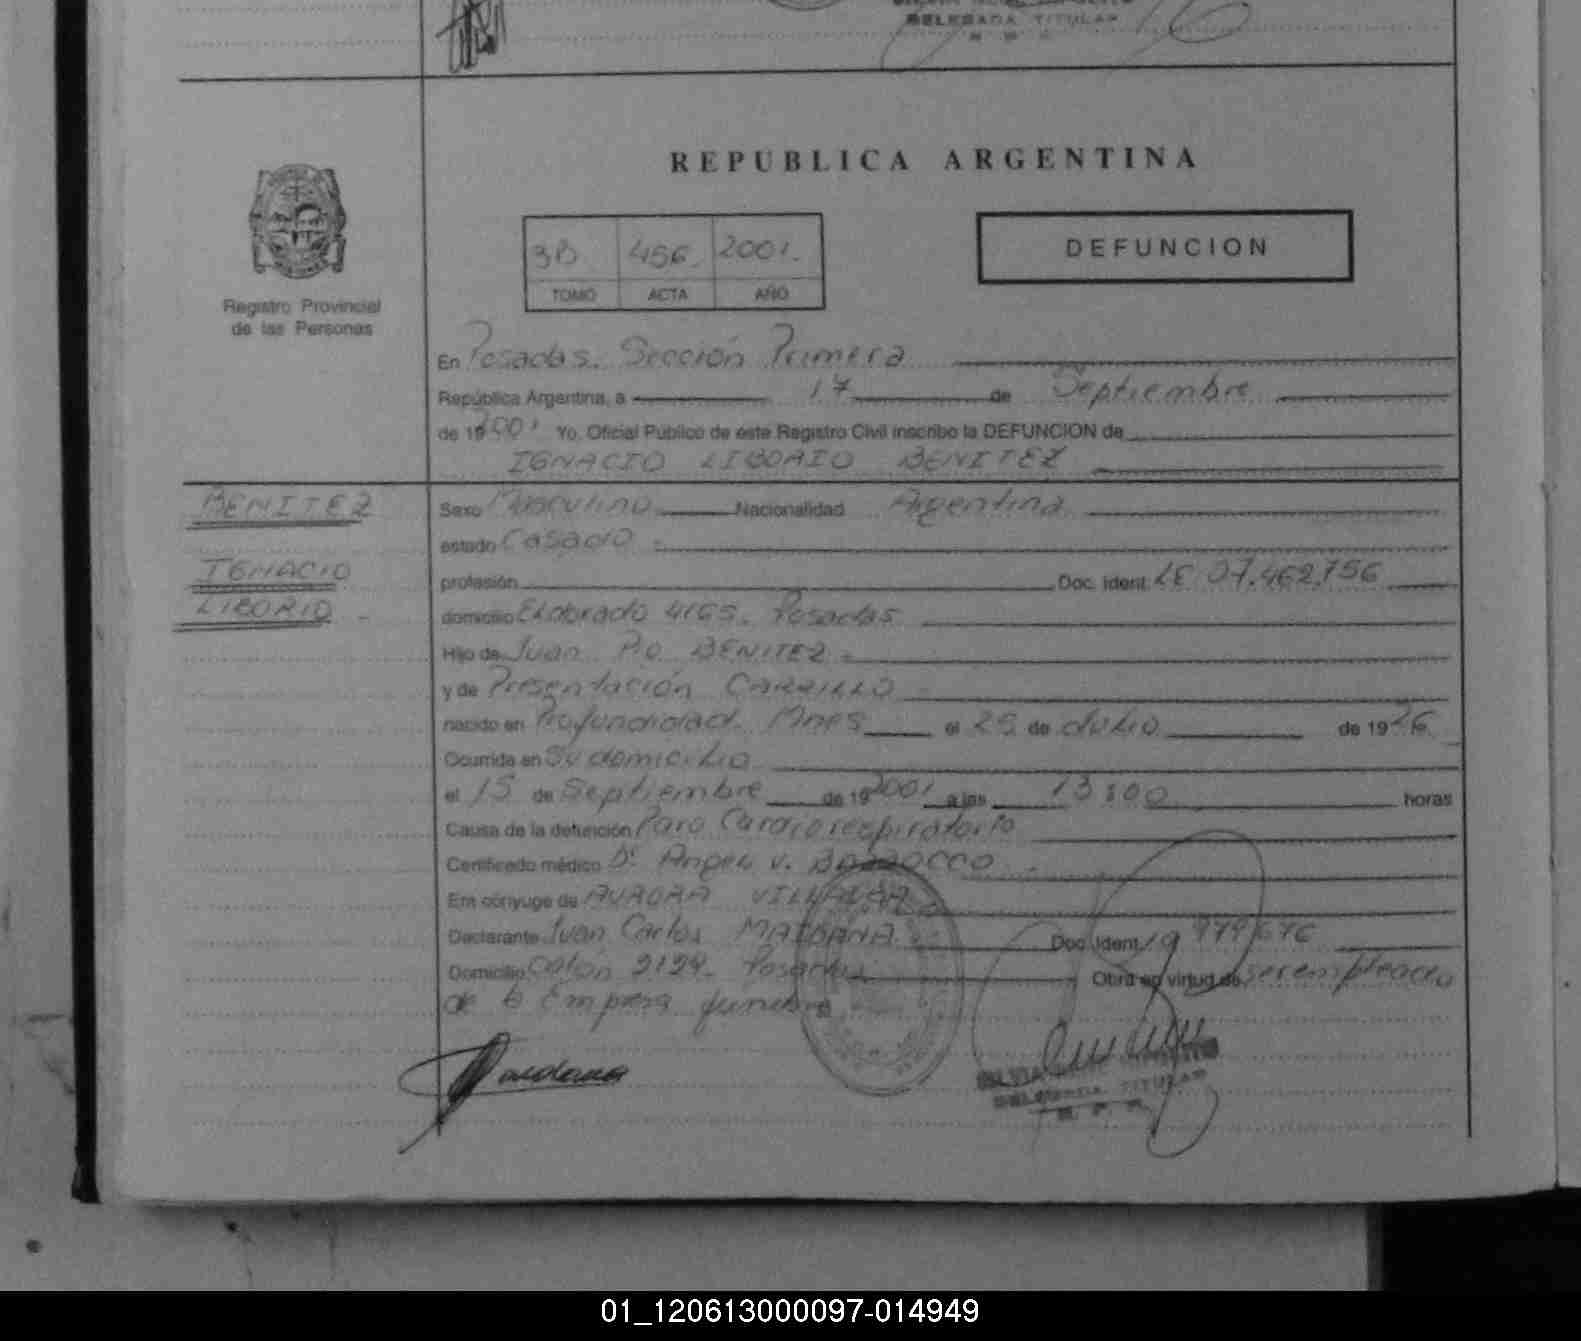 DELEGADA TITULAR
REPUBLICA ARGENTINA
Registro Provincial
de las Personas
3B. 456. 2001.
TOMO ACTA AÑO
DEFUNCION
En Posadas. Sección Primera
República Argentina, a 17 de Septiembre
de 19 2001 Yo, Oficial Público de este Registro Civil inscribo la DEFUNCION de
IGNACIO LIBORIO BENITEZ
BENITEZ
IGNACIO
LIBORIO
Sexo Masculino Nacionalidad Argentina
estado Casado
profesión Doc. Ident. LE 07.462.756
domicilio Elaborado 4165. Posadas
Hijo de Juan Pio BENITEZ
y de Presentación CARRILLO
nacido en Profundidad. Mnes el 25 de Julio de 19 26
Ocurrida en Su domicilio
el 15 de Septiembre de 19 2001 a las 13:00 horas
Causa de la defunción Paro Cardiorespiratorio
Certificado médico Dr. Angel V.
Era cónyuge de AURORA VILLALBA
Declarante Juan Carlos MAIDANA Doc. Ident. 19 979 676
Domicilio Colón 2124. Posadas Obra en virtud de ser empleado
de la Empresa funebre
Maidana
SILVIA
DELEGADA TITULAR
R. P. P.
01_120613000097-014949